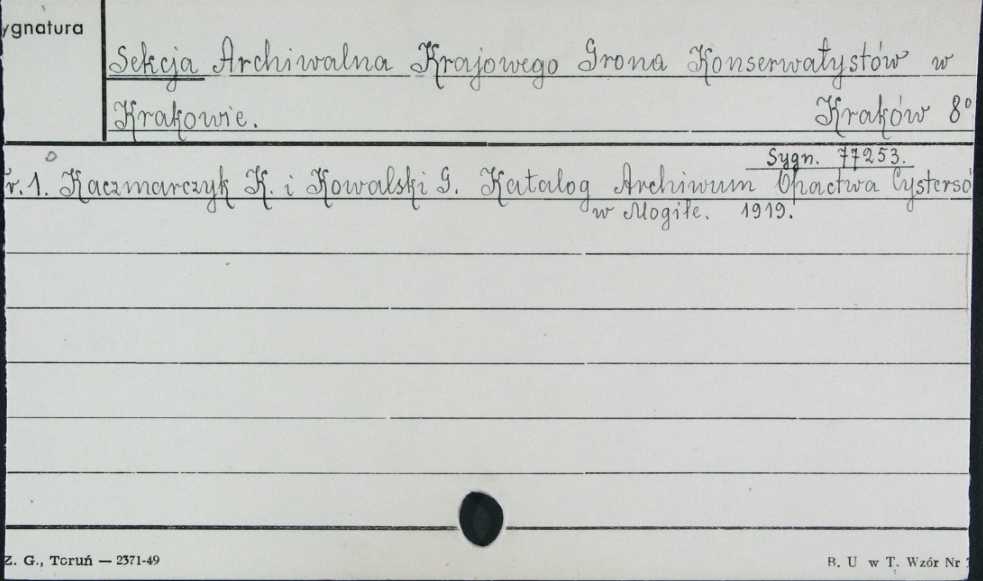 ygnatura
Sekcja Archiwalna Krajowego Grona Konserwatystów w
Krakowie. Kraków 8°
Sygn. 77253.
r. 1. Kaczmarczyk K. i Kowalski G. Katalog Archiwum Opactwa Cystersó
w Mogile. 1919.
Z. G., Toruń — 2371-49
B. U w T. Wzór Nr